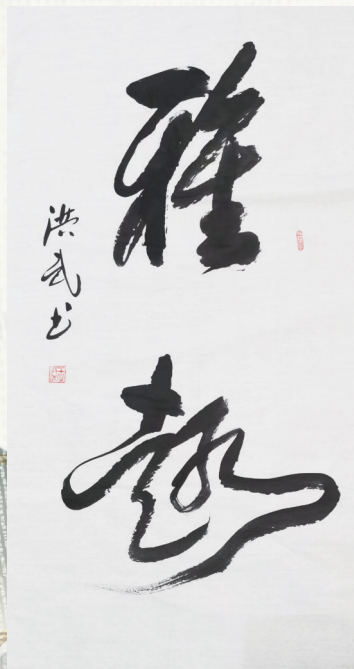 雅趣
洪武书